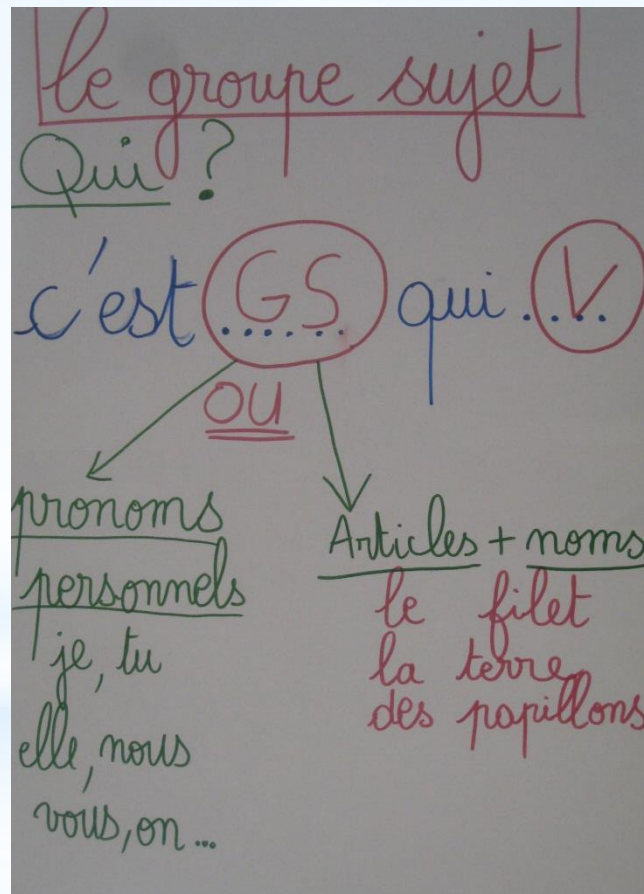 le groupe sujet
Qui ?
c'est GS...... qui V....
OU
pronoms personnels
je, tu
elle, nous
vous, on...
Articles + noms
le filet
la terre
des papillons